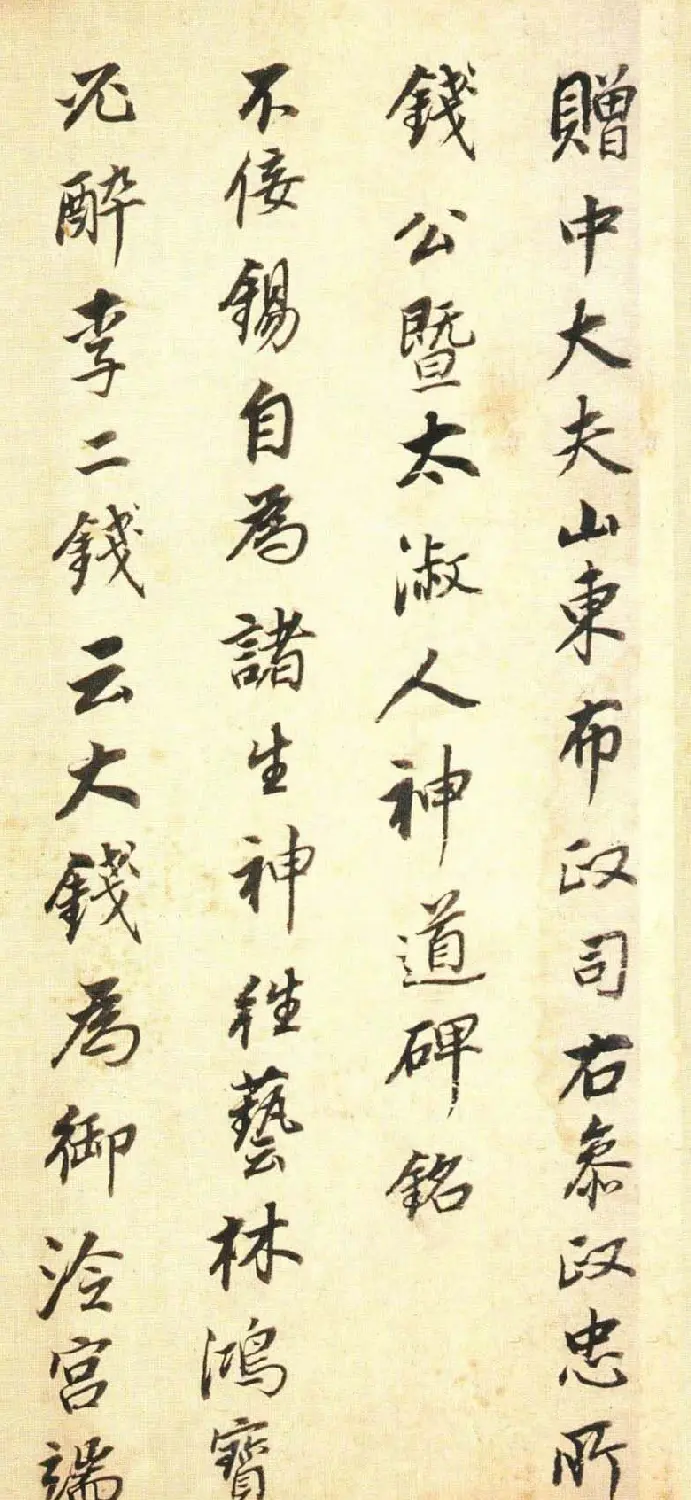 贈中大夫山東布政司右叅政忠所
錢公暨太淑人神道碑銘
不佞錫自為諸生神往藝林鴻寶
況醉李二錢云大錢為御泠宫端